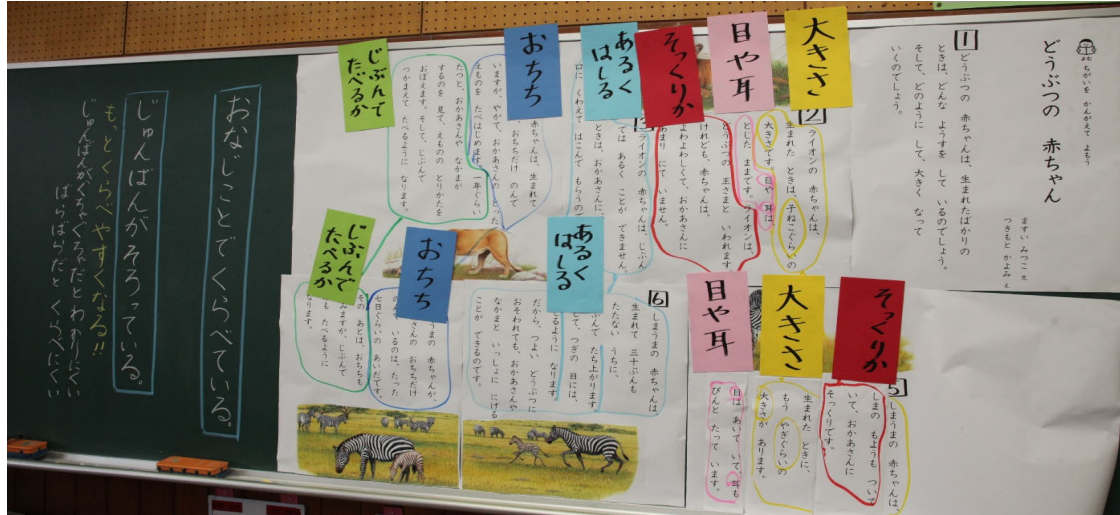 ちがいを かんがえて よもう
どうぶつの 赤ちゃん
ますい みつこ 文
つきもと かよみ え
1
どうぶつの 赤ちゃんは、生まれたばかりの
ときは、どんな ようすを して いるのでしょう。
そして、どのように して 大きく なって
いくのでしょう。
大きさ
目や耳
そっくりか
あるく
はしる
おちち
じぶんで
たべるか
2
ライオンの 赤ちゃんは、
生まれた ときは、子ねこぐらいの
大きさです。目や 耳は、
とじた ままです。ライオンは、
どうぶつの 王さまと いわれます。
けれども、赤ちゃんは、
よわよわしくて、おかあさんに
あまり にて いません。
3
ライオンの 赤ちゃんは、じぶん
では あるく ことが できません。
ときは、おかあさんに、
口に くわえて はこんで もらうので
赤ちゃんは、生まれて
おちちだけ のんで
いますが、やがて、おかあさんの とった
えものを たべはじめます。一年ぐらい
たつと、おかあさんや なかまが
するのを 見て、えものの とりかたを
おぼえます。そして、じぶんで
つかまえて たべるように なります。
そっくりか
大きさ
目や耳
あるく
はしる
おちち
じぶんで
たべるか
5
しまうまの 赤ちゃんは、
生まれた ときに、
もう やぎぐらいの
大きさが あります。
目は あいて いて、耳も
ぴんと たって います。
しまの もようも ついて
いて、おかあさんに
そっくりです。
6
しまうまの 赤ちゃんは、
生まれて 三十ぷんも
たたない うちに、
ぶんで たち上がります。
して、つぎの 日には、
るように なります。
だから、つよい どうぶつに
おそわれても、おかあさんや
なかまと いっしょに にげる
ことが できるのです。
うまの 赤ちゃんが、
さんの おちちだけ
いるのは、たった
七日ぐらいの あいだです。
その あとは、おちちも
みますが、じぶんで
も たべるように
なります。
おなじことでくらべている。
じゅんばんがそろっている。
もっとくらべやすくなる!!
じゅんばんがぐちゃぐちゃだとわかりにくい
ばらばらだとくらべにくい